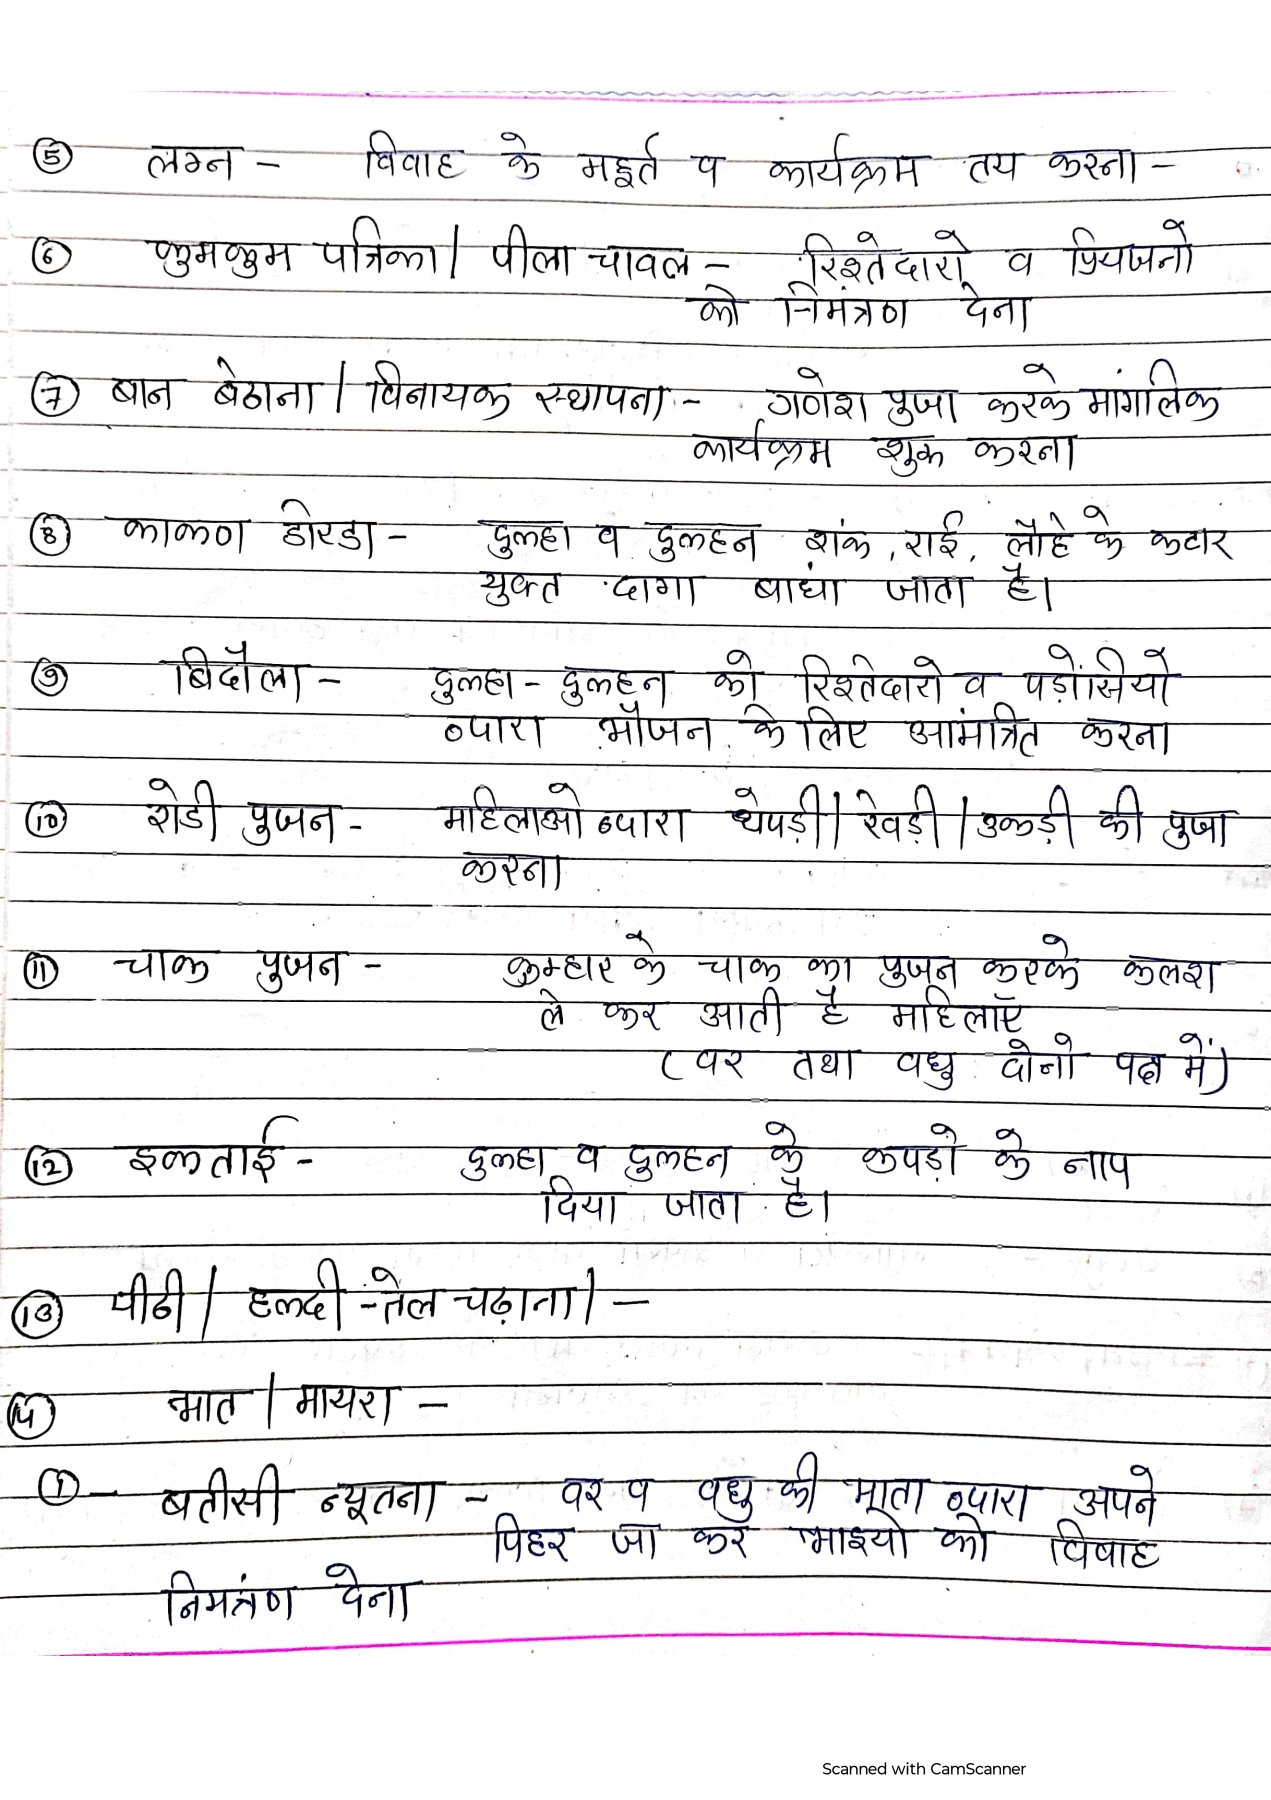 ⑤ लग्न - विवाह के महूर्त व कार्यक्रम तय करना -
⑥ कुमकुम पत्रिका / पीला चावल - रिश्तेदारो व प्रियजनो
को निमंत्रण देना
⑦ बान बेठाना / विनायक स्थापना - गणेश पुजा करके मांगलिक
कार्यक्रम शुरू करना
⑧ काकण डोरडा - दुल्हा व दुल्हन शंक, राई, लौहे के कटार
युक्त दागा बाधां जाता है।
⑨ बिदौला - दुल्हा - दुल्हन को रिश्तेदारो व पड़ोंसियो
व्दारा भौजन के लिए आमंत्रित करना
⑩ रोडी पुजन - महिलाओ व्दारा थेपड़ी / रेवड़ी / उकड़ी की पुजा
करना
⑪ चाक पुजन - कुम्हार के चाक का पुजन करके कलश
ले कर आती है महिलाएँ
(वर तथा वधु दोनो पक्ष में)
⑫ इकताई - दुल्हा व दुल्हन के कपड़ो के नाप
दिया जाता है।
⑬ पीढी / हल्दी - तेल चढ़ाना / -
⑭ भात / मायरा -
① - बतीसी न्यूतना - वर व वधु की माता व्दारा अपने
पिहर जा कर भाइयो को विवाह
निमत्रंण देना
Scanned with CamScanner